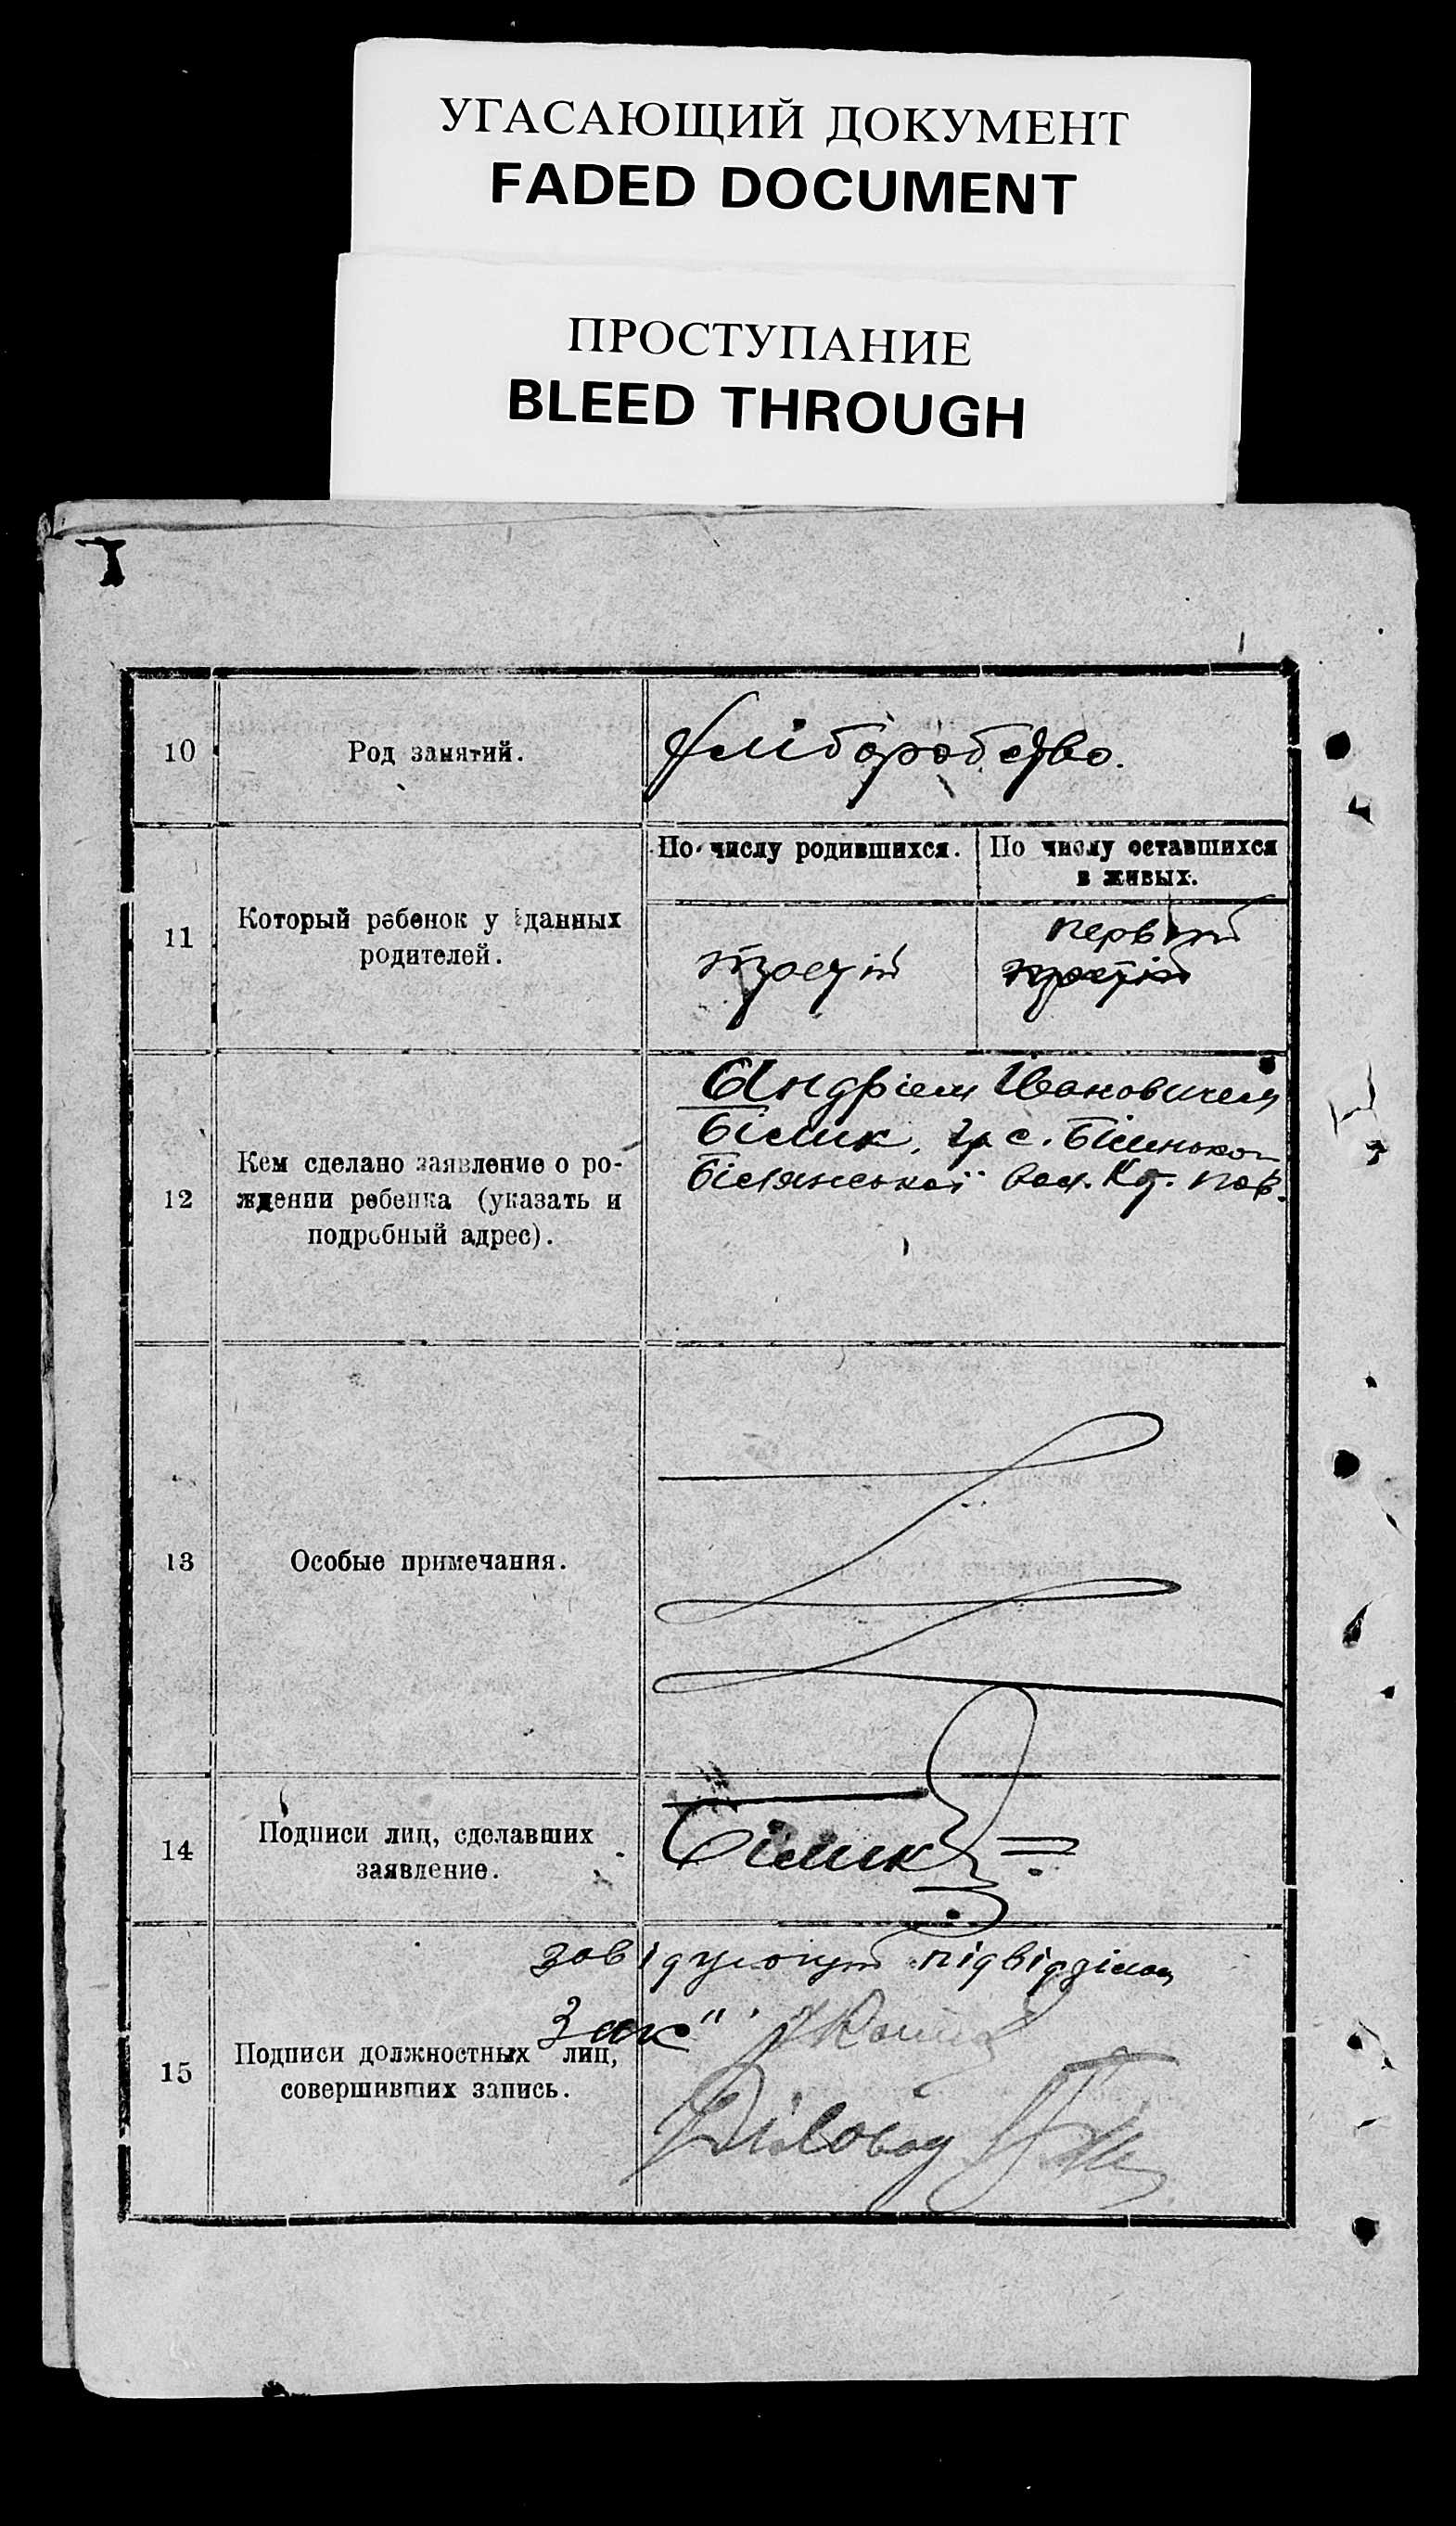 УГАСАЮЩИЙ ДОКУМЕНТ
FADED DOCUMENT
ПРОСТУПАНИЕ
BLEED THROUGH
10
Род занятий.
Хліборобство.
11
Который ребенок у данных
родителей.
По числу родившихся.
По числу оставшихся
в живых.
третій
первий
третій
12
Кем сделано заявление о ро-
ждении ребенка (указать и
подробный адрес).
Андрієм Івановичем
Білик, гр. с.
вол. пов.
13
Особые примечания.
14
Подписи лиц, сделавших
заявление.
Білик
15
Подписи должностных лиц,
совершивших запись.
завідуючий підвідділом
Діловод